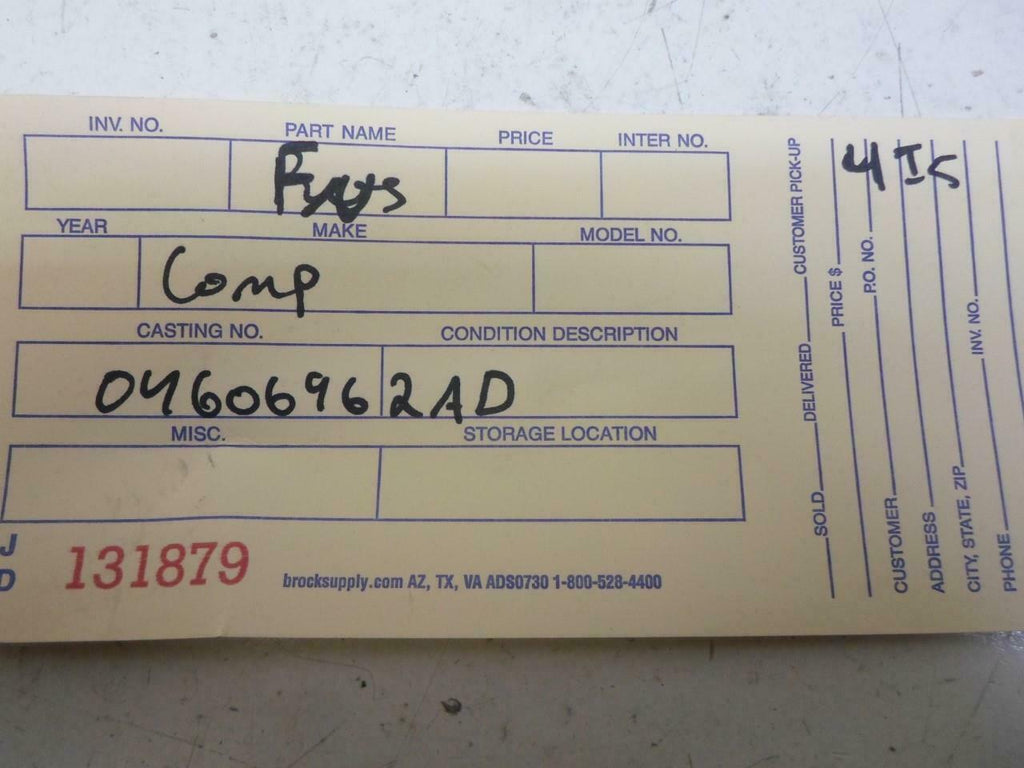 INV. NO. PART NAME PRICE INTER NO.
YEAR MAKE MODEL NO.
Comp
CASTING NO. CONDITION DESCRIPTION
04606962AD
MISC. STORAGE LOCATION
J
D
131879
brocksupply.com AZ, TX, VA ADS0730 1-800-528-4400
SOLD DELIVERED CUSTOMER PICK-UP
PRICE $
P.O. NO.
CUSTOMER
ADDRESS
CITY, STATE, ZIP
INV. NO.
PHONE